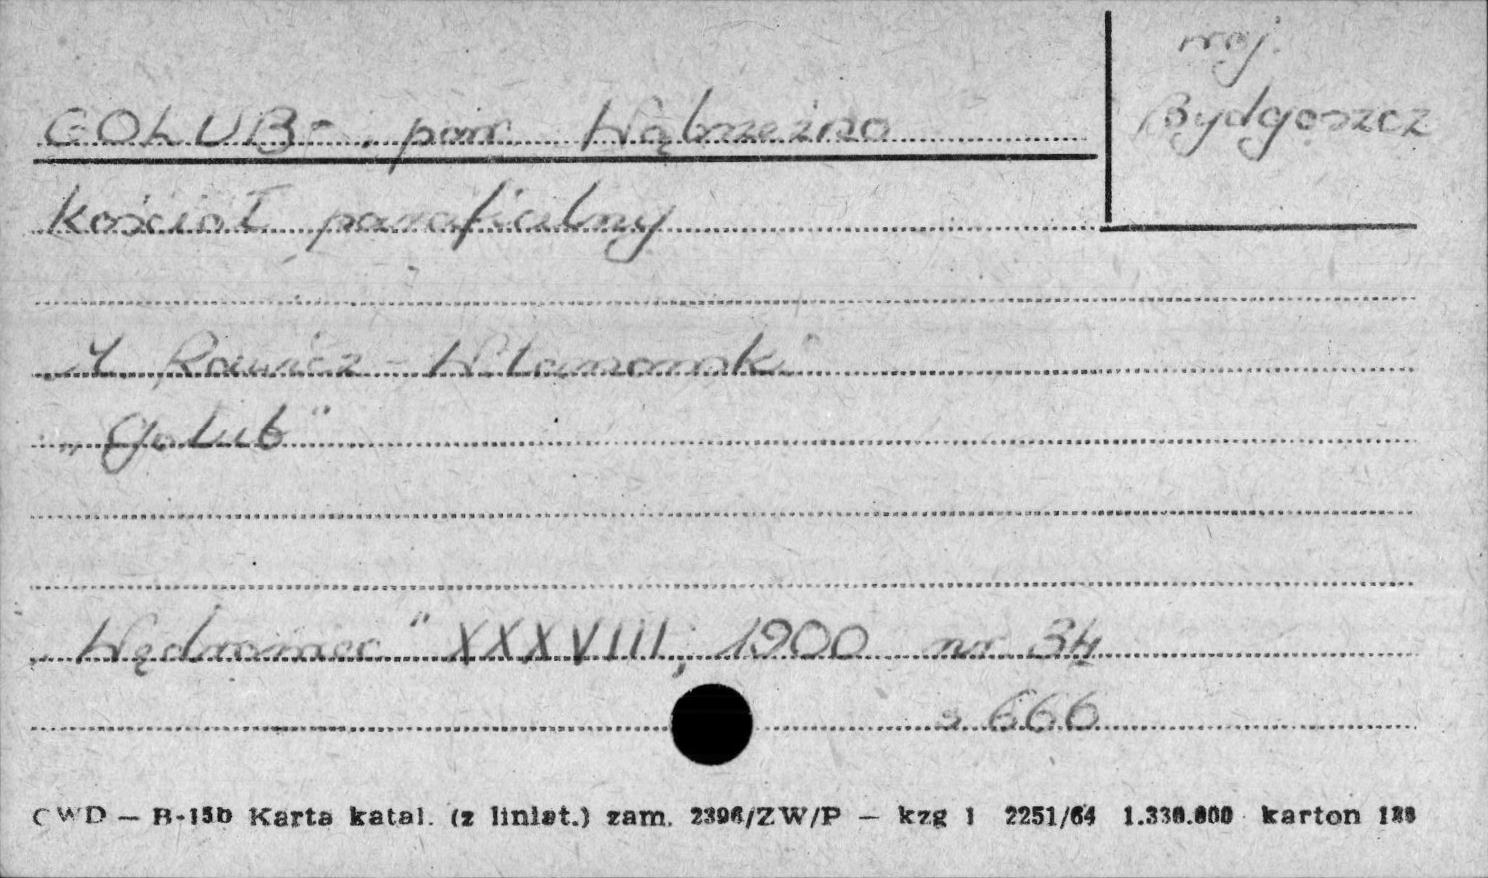 woj.
Bydgoszcz
GOLUB-, pow. Wąbrzeźno
kościół parafialny
„Z. Rawicz-Witanowski
„Golub"
„Wędrowiec" XXXVIII, 1900 nr 34
s 666
CWD — B-15b Karta katal. (z liniat.) zam. 2396/ZW/P — kzg 1 2251/64 1.330.000 karton